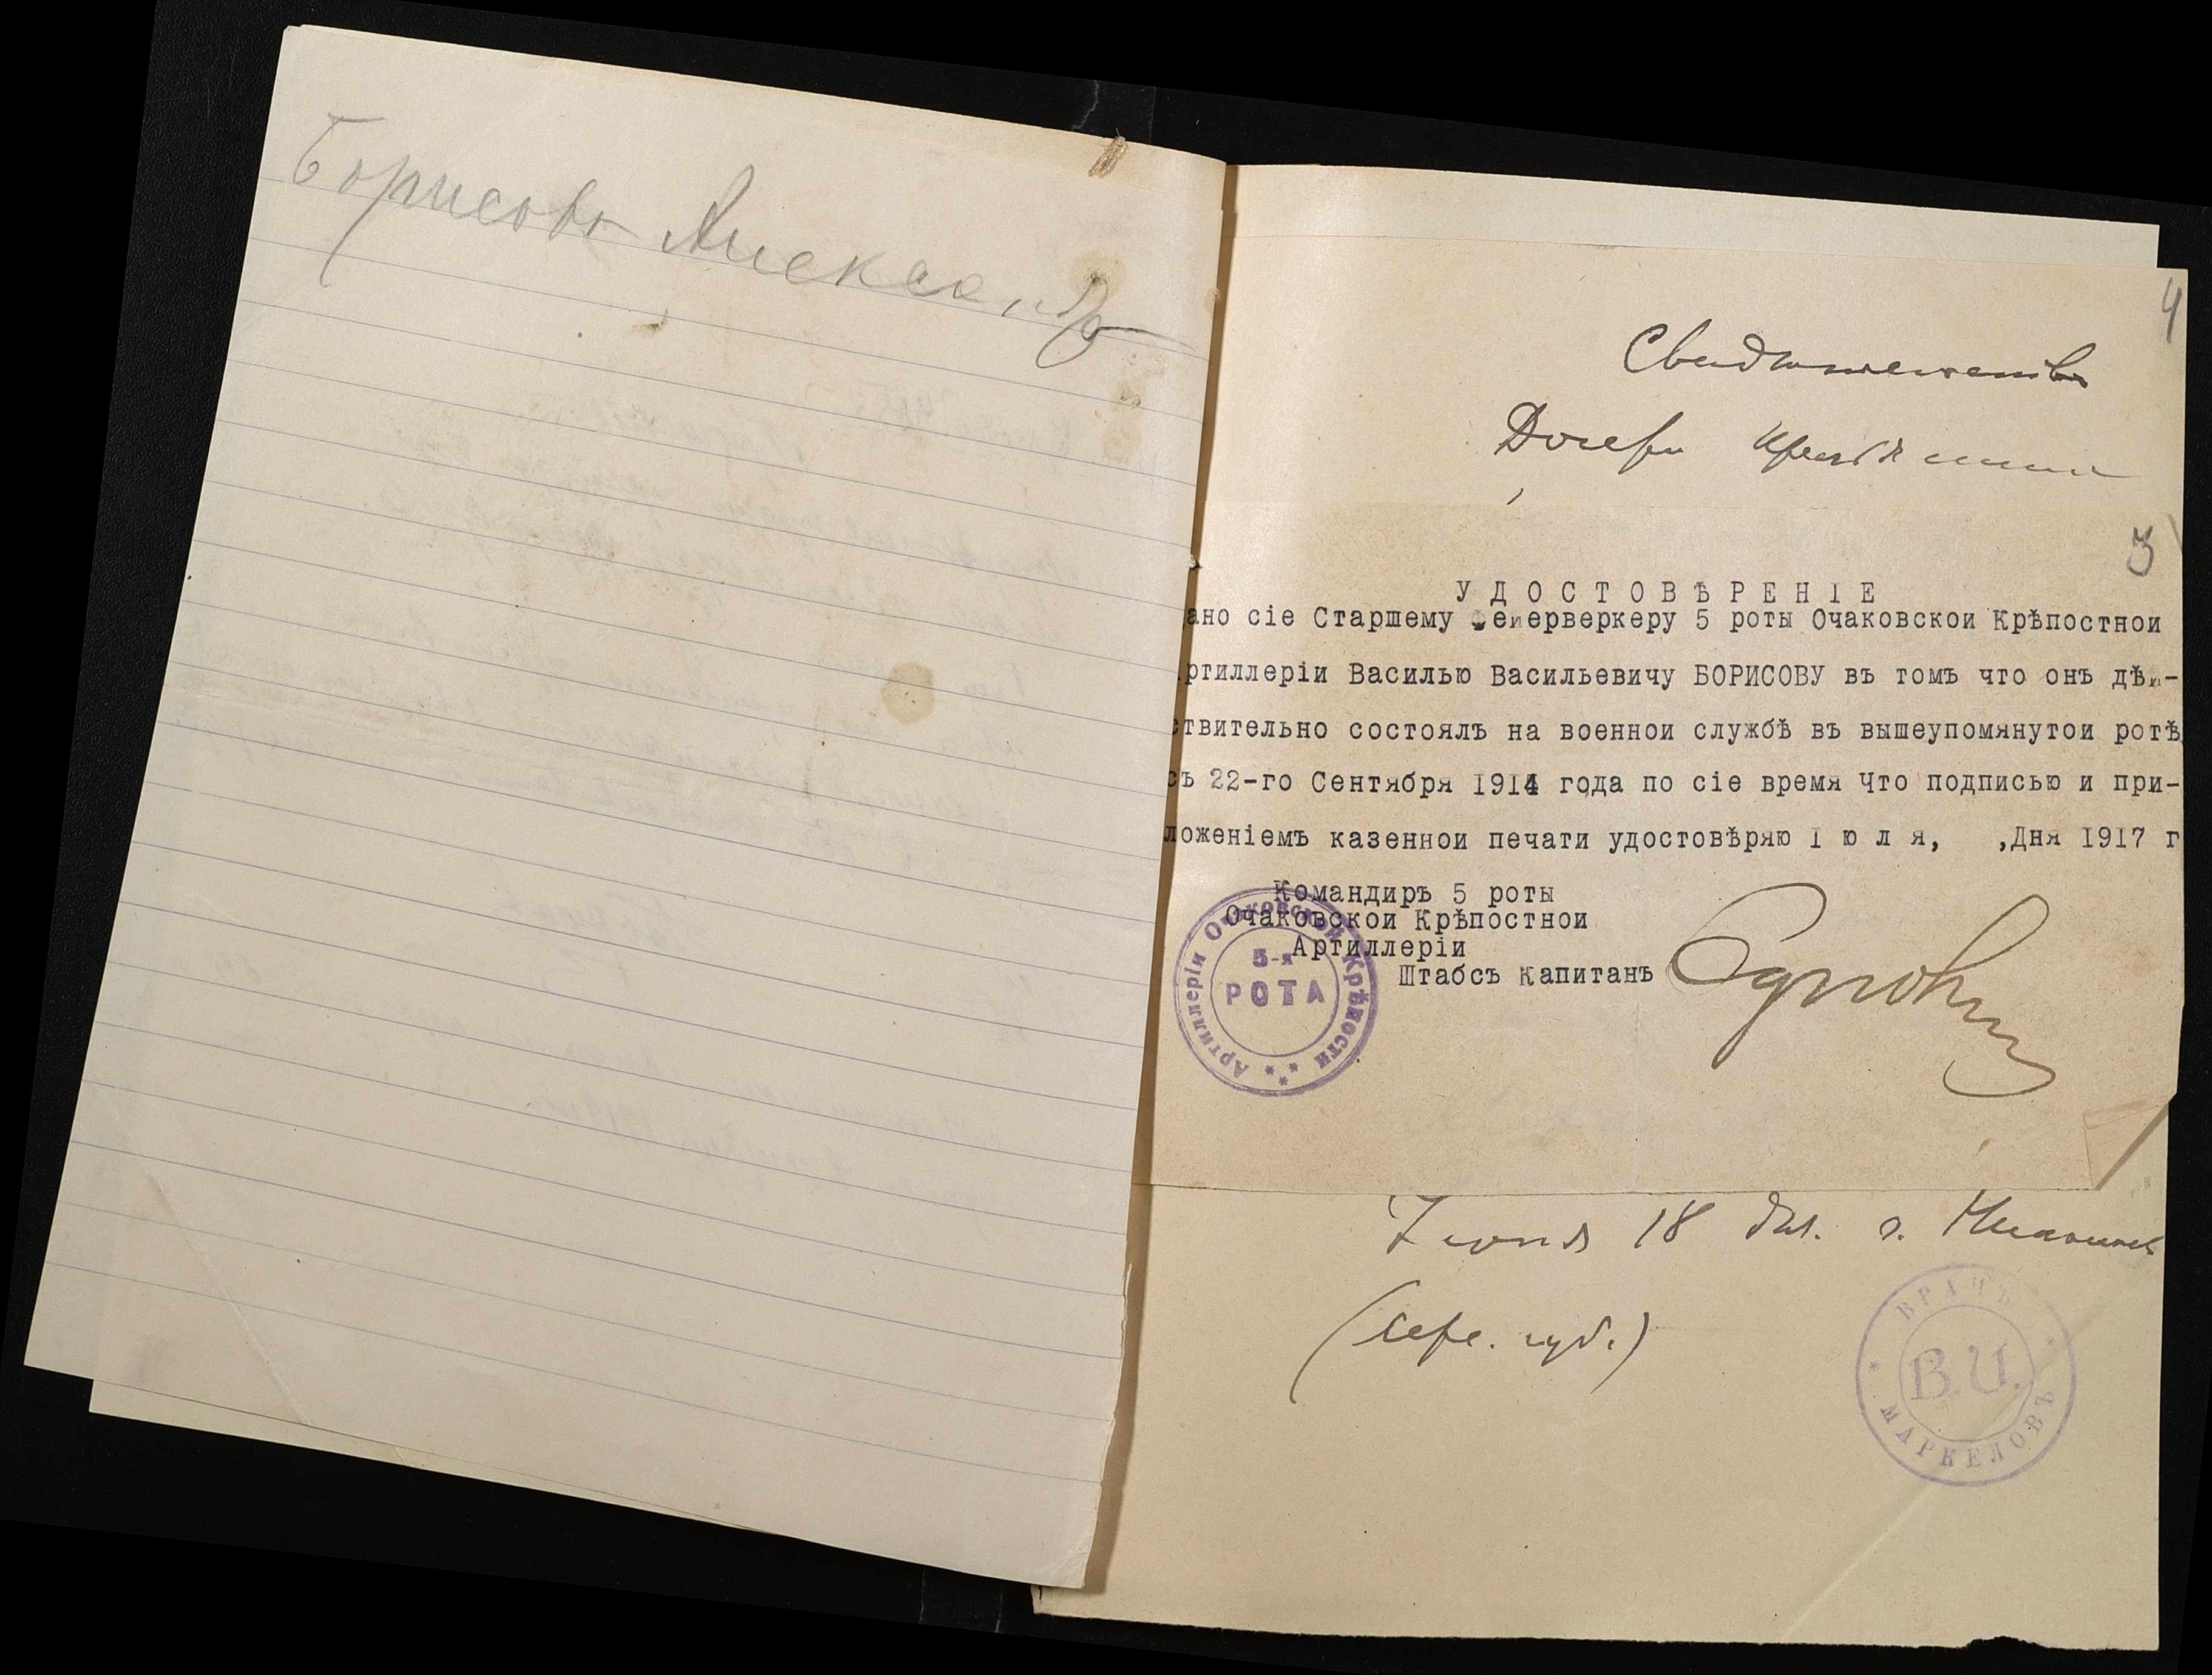 Борисовъ Александръ
4
Свидѣтельство
Дочери крестьянина
3
УДОСТОВѢРЕНІЕ
ано сіе Старшему Феиерверкеру 5 роты Очаковскои Крѣпостнои
ртиллеріи Василью Васильевичу БОРИСОВУ въ томъ что онъ дѣи-
ствительно состоялъ на военнои службѣ въ вышеупомянутои ротѣ
съ 22-го Сентября 1914 года по сіе время Что подписью и при-
ложеніемъ казеннои печати удостовѣряю I ю л я, ,Дня 1917 г
Командиръ 5 роты
Очаковскои Крѣпостнои
Артиллеріи
Штабсъ Капитанъ
Артиллеріи Очаковской Крѣпости
5-я
РОТА
Іюня 18 дня. г.
губ.)
ВРАЧЪ
В.И.
МАРКЕЛОВЪ